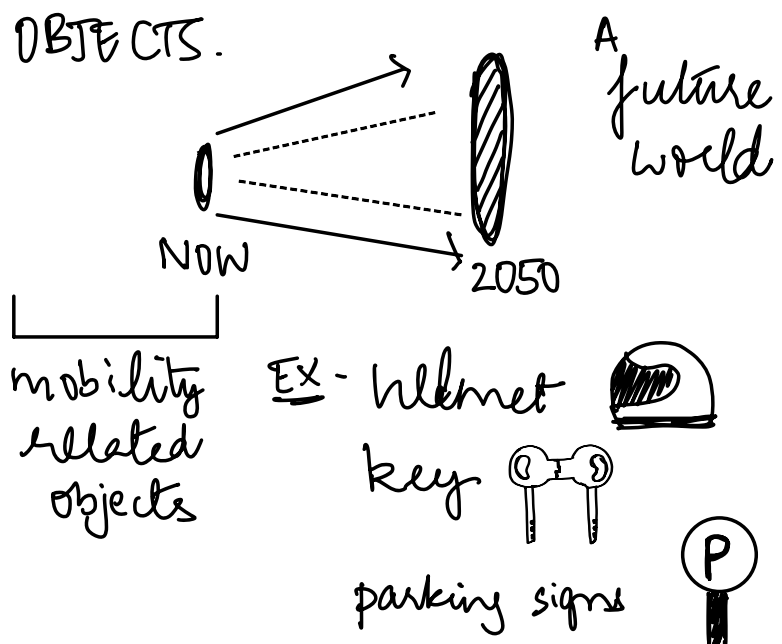 OBJECTS.
A
future
world
NOW
2050
mobility
related
objects
EX - helmet
key
parking signs
P